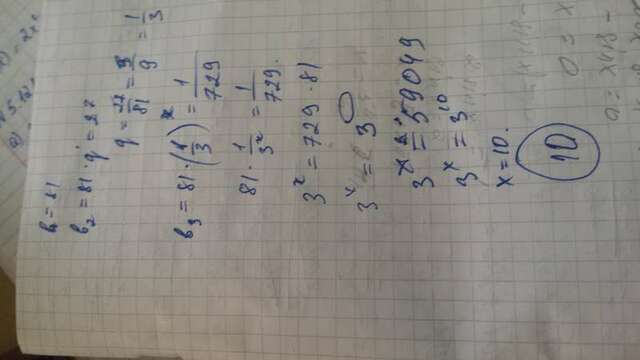 b₁ = 81
b₂ = 81 · q = 27
q = 27/81 = 3/9 = 1/3
b₃ = 81 · (1/3)ˣ = 1/729
81 · 1/3ˣ = 1/729.
3ˣ = 729 · 81
3ˣ = 3
3ˣ = 59049
3ˣ = 3¹⁰
x = 10.
10